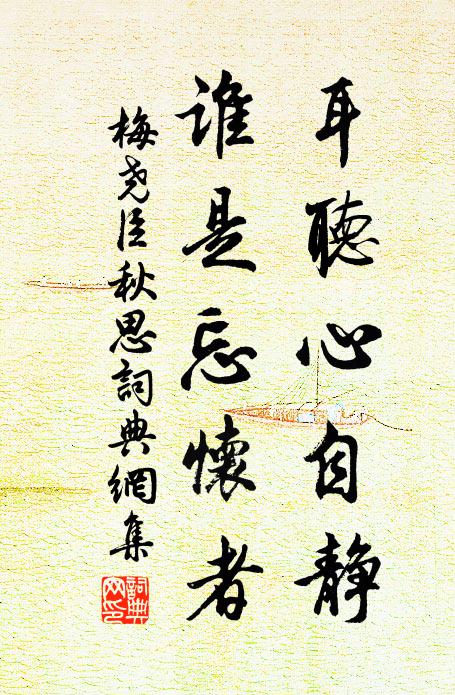 耳聽心自静
誰是忘懷者
梅尧臣秋思詞典網集
詞典网印